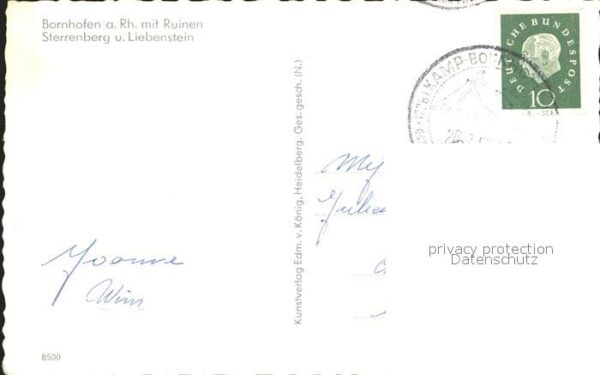 Bornhofen a. Rh. mit Ruinen
Sterrenberg u. Liebenstein
DEUTSCHE BUNDESPOST
10
KAMP-BORNHOFEN
Kunstverlag Edm. v. König, Heidelberg. Ges. gesch. (N.)
privacy protection
Datenschutz
Yvonne
Wim
8500